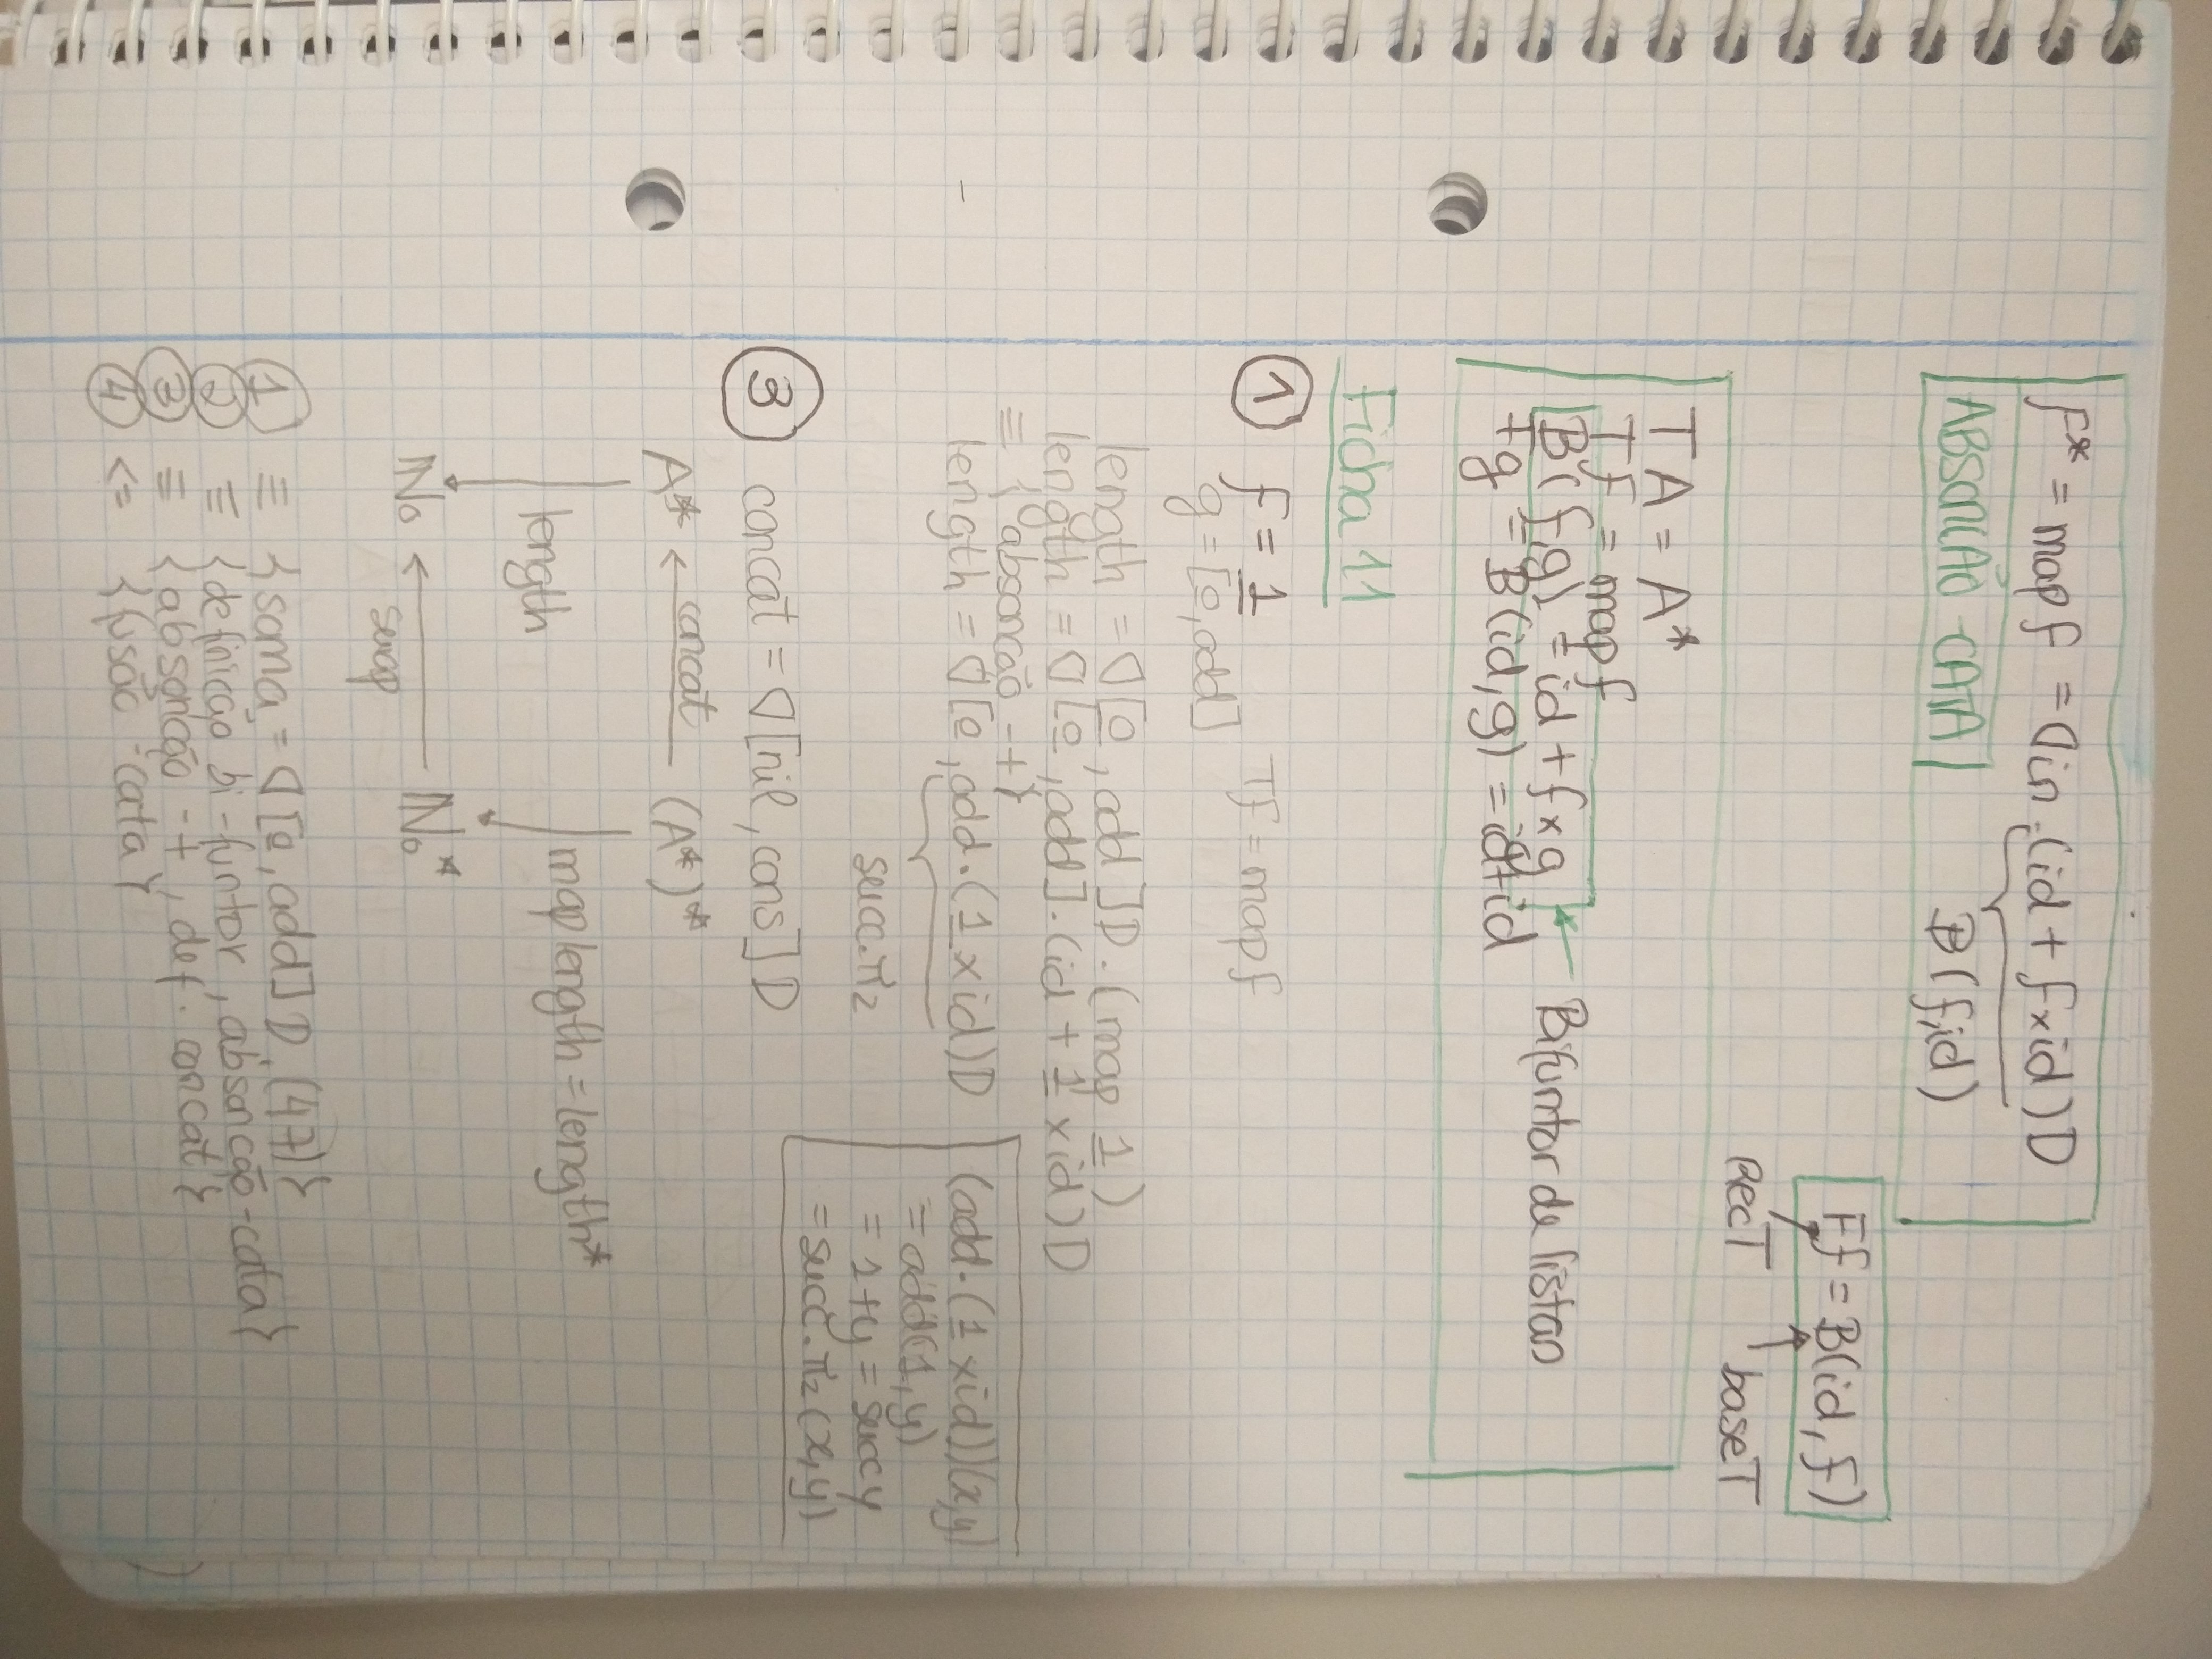 f* = map f = ⦇in.(id + f×id)⦈
ABSORÇÃO-CATA B(f,id)
Ff = B(id, f)
RecT baseT
TA = A*
Tf = map f
B(f,g) = id + f×g ← Bifuntor de listas
Fg = B(id,g) = id+id
Ficha 11
① f = 1 Tf = map f
g = [0, add]
length = ⦇[0, add]⦈.(map 1)
length = ⦇[0, add].(id + 1 × id)⦈
≡ { absorção -+}
length = ⦇[0, add.(1 × id)⦈
succ.π₂
(add.(1 × id))(x,y)
= add(1, y)
= 1+y = succ y
= succ.π₂(x,y)
③ concat = ⦇[nil, cons]⦈
A* ← concat (A*)*
length map length = length*
ℕ₀ ← ℕ₀*
① ≡ {soma = ⦇[0, add]⦈, (47)}
② ≡ {definição bi-funtor, absorção-cata}
③ ≡ {absorção -+, def. concat}
④ <= {fusão -cata}